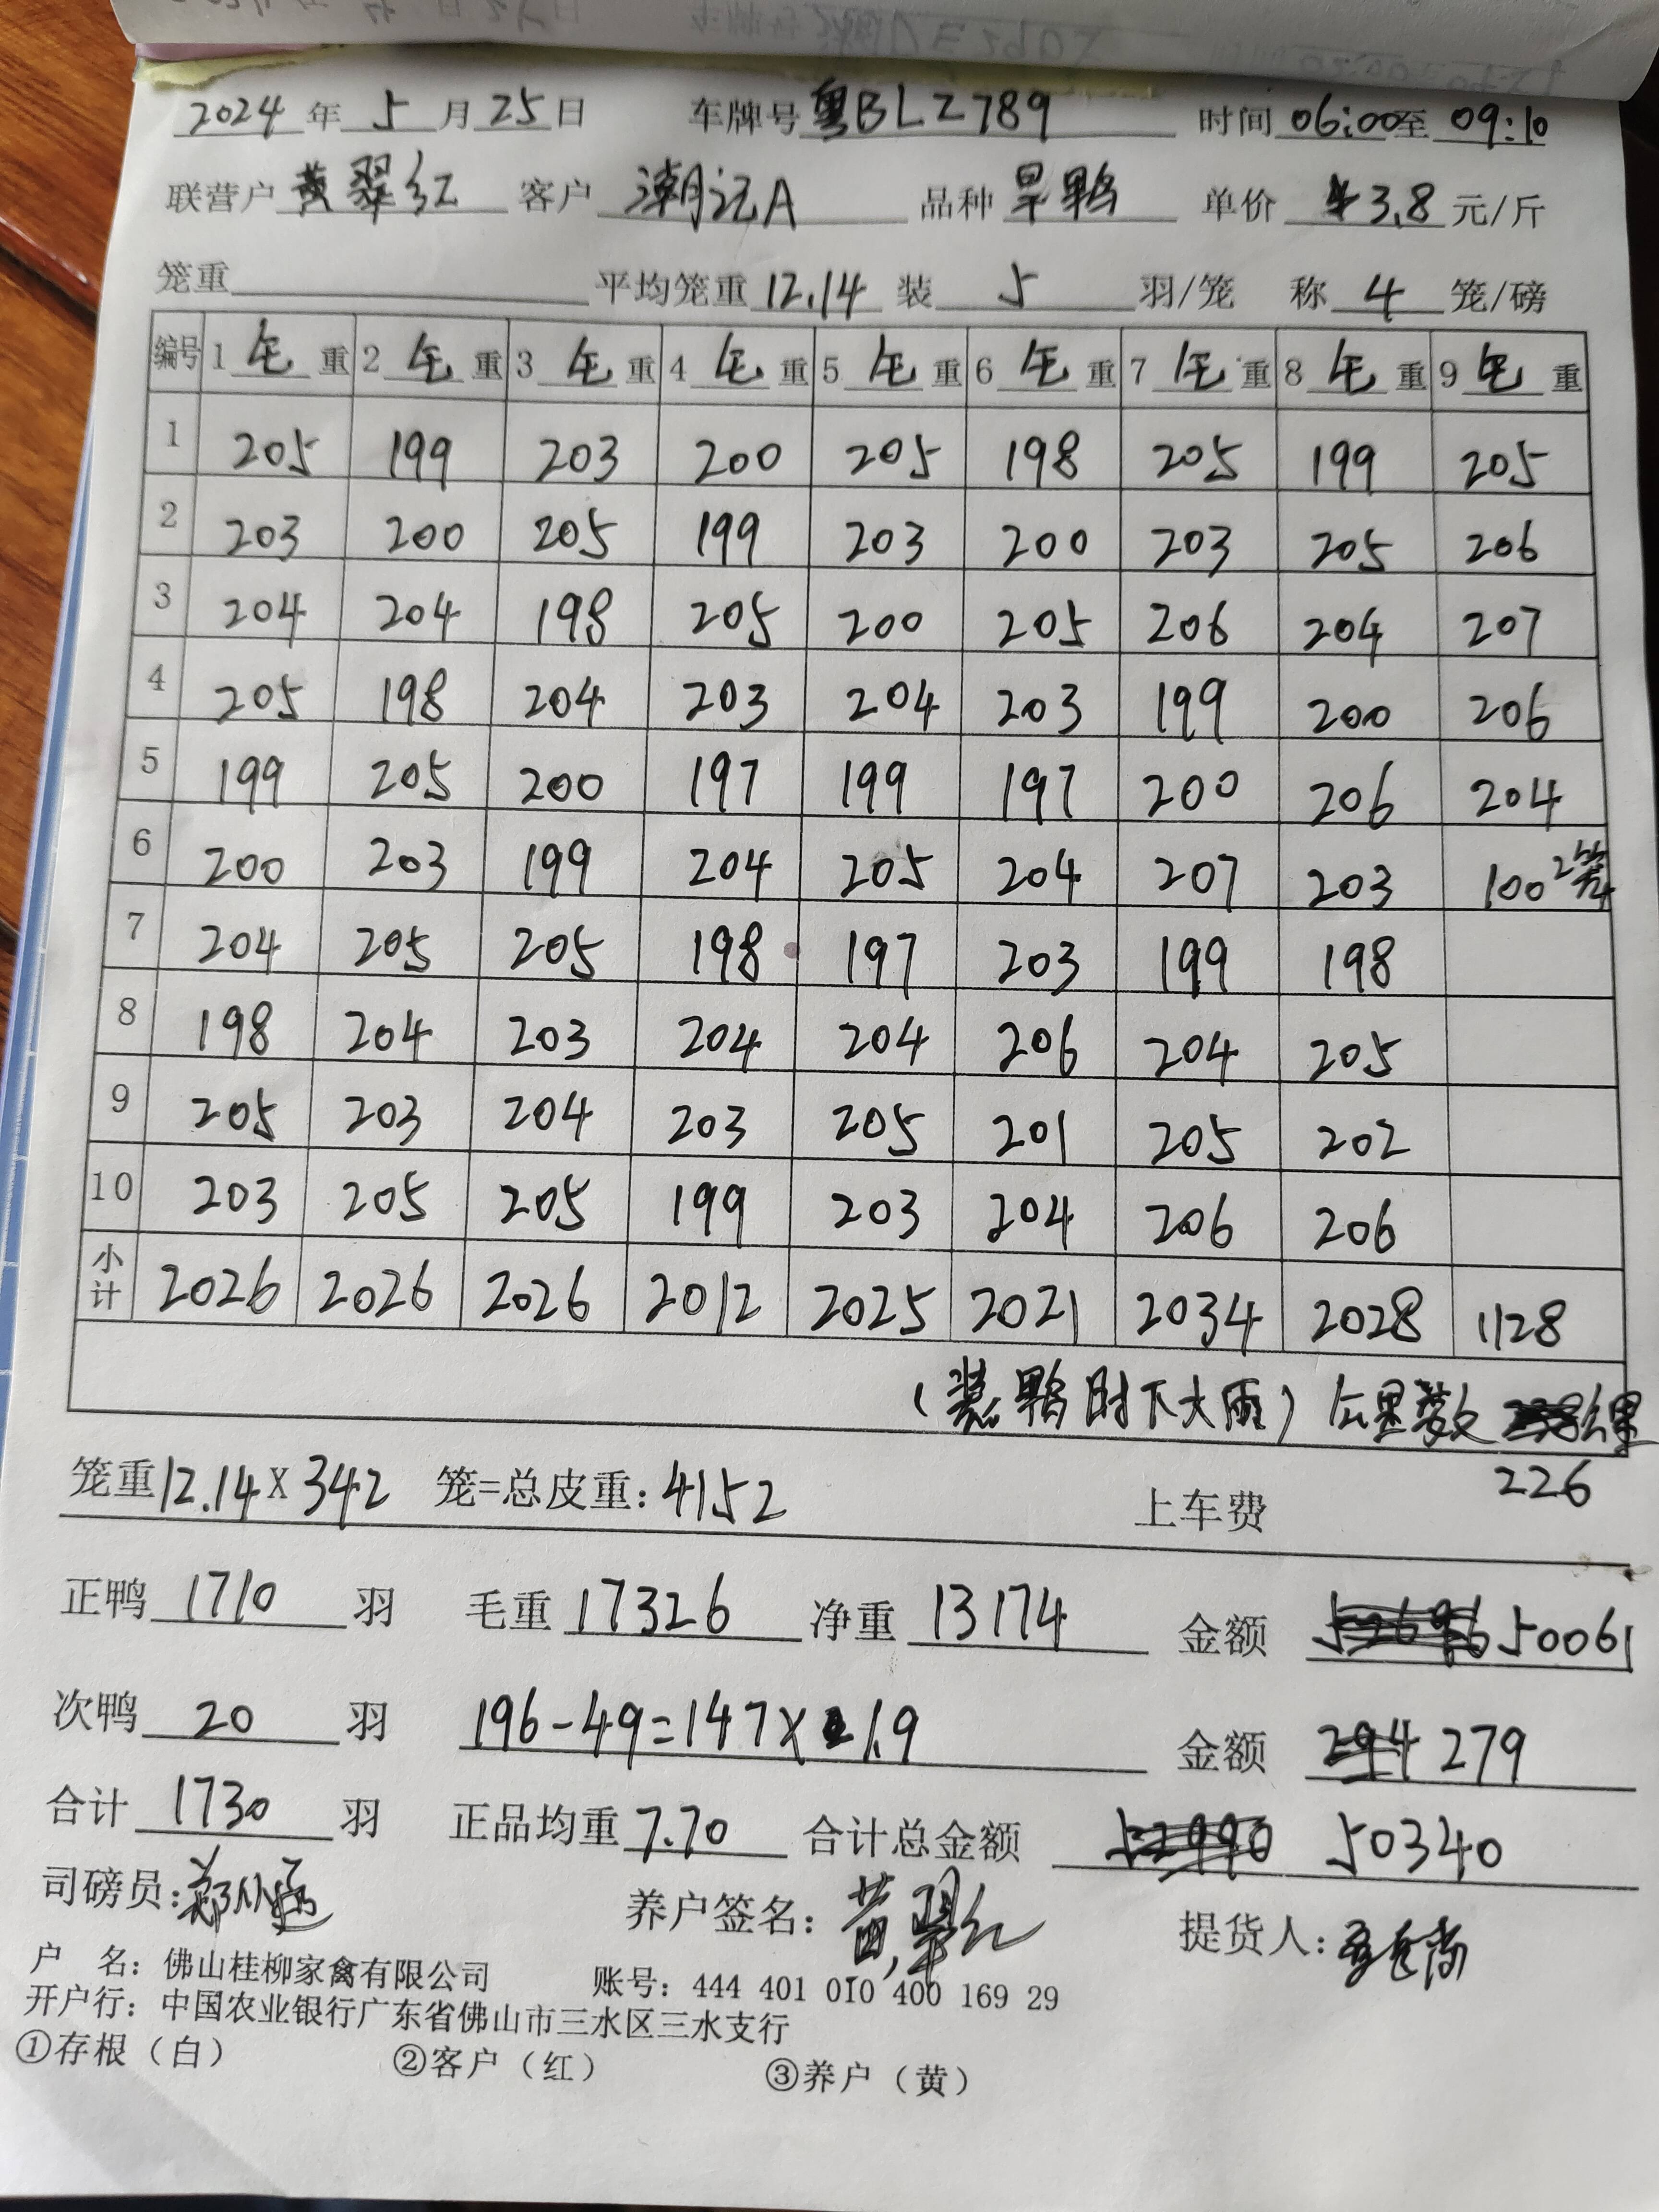 2024年5月25日 车牌号粤BLZ789 时间06:00至09:10
联营户黄翠红 客户潮记A 品种旱鸭 单价¥3.8元/斤
笼重 平均笼重12.14 装5羽/笼 称4笼/磅
编号 1毛重 2毛重 3毛重 4毛重 5毛重 6毛重 7毛重 8毛重 9毛重
1 205 199 203 200 205 198 205 199 205
2 203 200 205 199 203 200 203 205 206
3 204 204 198 205 200 205 206 204 207
4 205 198 204 203 204 203 199 200 206
5 199 205 200 197 199 197 200 206 204
6 200 203 199 204 205 204 207 203 100 2笼
7 204 205 205 198 197 203 199 198
8 198 204 203 204 204 206 204 205
9 205 203 204 203 205 201 205 202
10 203 205 205 199 203 204 206 206
小计 2026 2026 2026 2012 2025 2021 2034 2028 1128
(装鸭时下大雨) 公里数 公里
226
笼重12.14X342 笼=总皮重:4152 上车费
正鸭1710羽 毛重17326 净重13174 金额 50061
次鸭20羽 196-49=147X1.9 金额 294 279
合计1730羽 正品均重7.70 合计总金额 52990 50340
司磅员: 养户签名:黄翠红 提货人:
户 名:佛山桂柳家禽有限公司 账号:444 401 010 400 169 29
开户行:中国农业银行广东省佛山市三水区三水支行
①存根(白) ②客户(红) ③养户(黄)